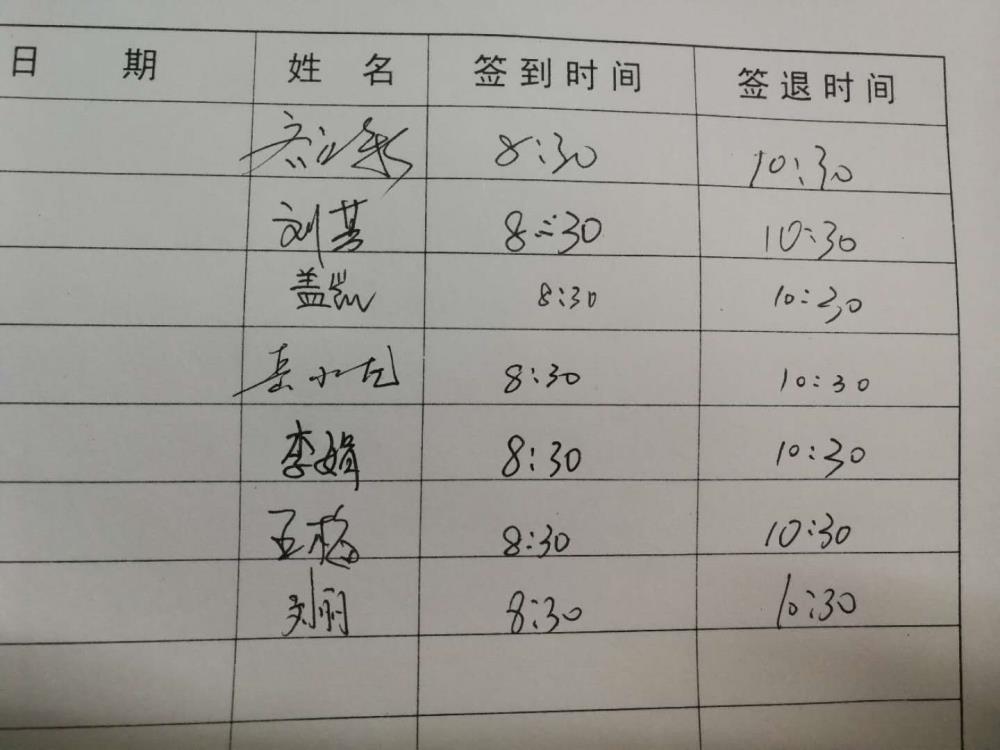 日 期 姓 名 签到时间 签退时间
8:30 10:30
刘 8:30 10:30
盖凯 8:30 10:30
8:30 10:30
李娟 8:30 10:30
王梅 8:30 10:30
刘丽 8:30 10:30